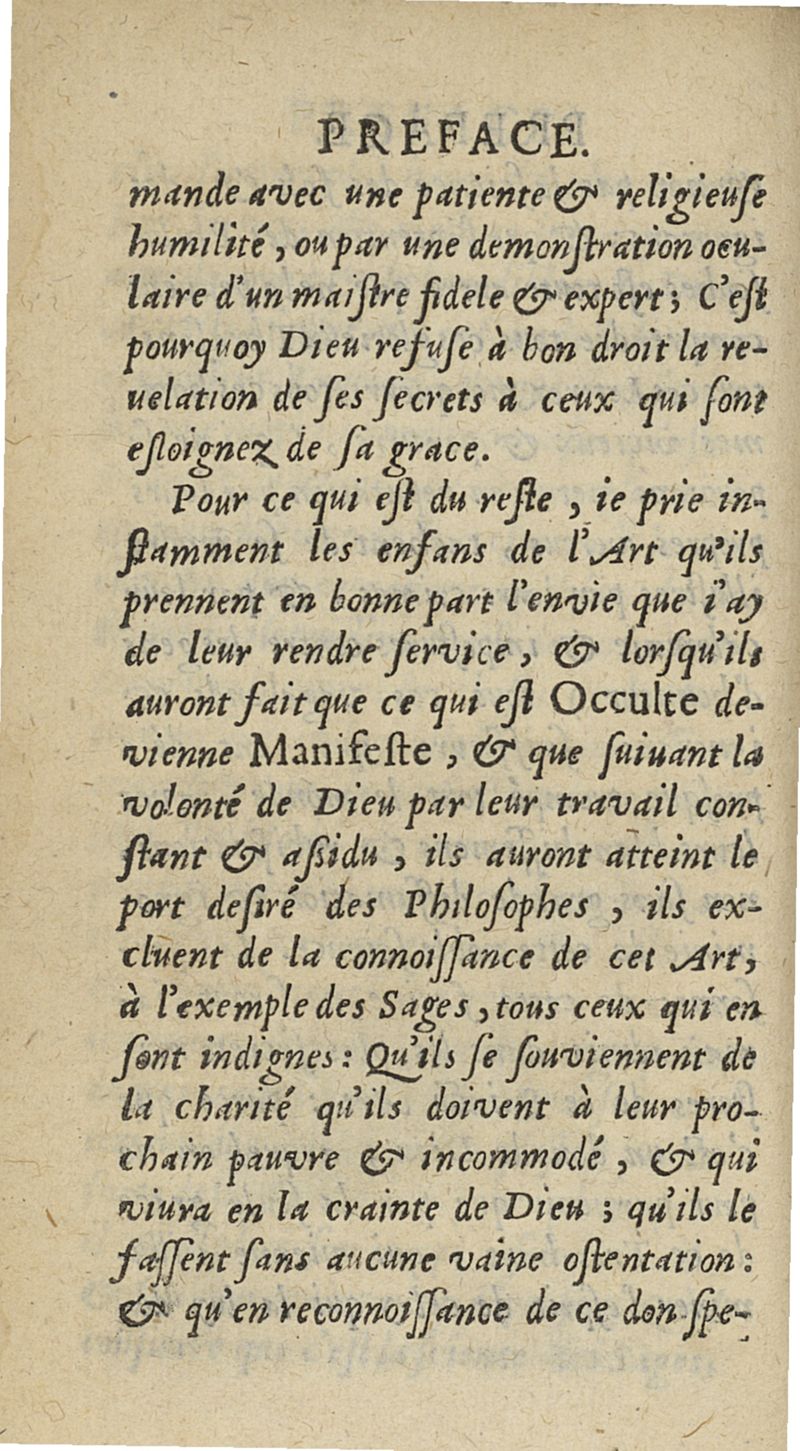 PREFACE.
mande avec une patiente & religieuſe
humilité, ou par une demonſtration ocu-
laire d'un maiſtre fidele & expert; C'eſt
pourquoy Dieu refuſe à bon droit la re-
uelation de ſes ſecrets à ceux qui ſont
eſloignez de ſa grace.
Pour ce qui eſt du reſte, ie prie in-
ſtamment les enfans de l'Art qu'ils
prennent en bonne part l'envie que i'ay
de leur rendre ſervice, & lorſqu'ils
auront fait que ce qui eſt Occulte de-
vienne Manifeſte, & que ſuiuant la
volonté de Dieu par leur travail con-
ſtant & aſſidu, ils auront atteint le
port deſiré des Philoſophes, ils ex-
cluent de la connoiſſance de cet Art,
à l'exemple des Sages, tous ceux qui en
ſont indignes: Qu'ils ſe ſouviennent de
la charité qu'ils doivent à leur pro-
chain pauvre & incommodé, & qui
viura en la crainte de Dieu; qu'ils le
faſſent ſans aucune vaine oſtentation:
& qu'en reconnoiſſance de ce don ſpe-